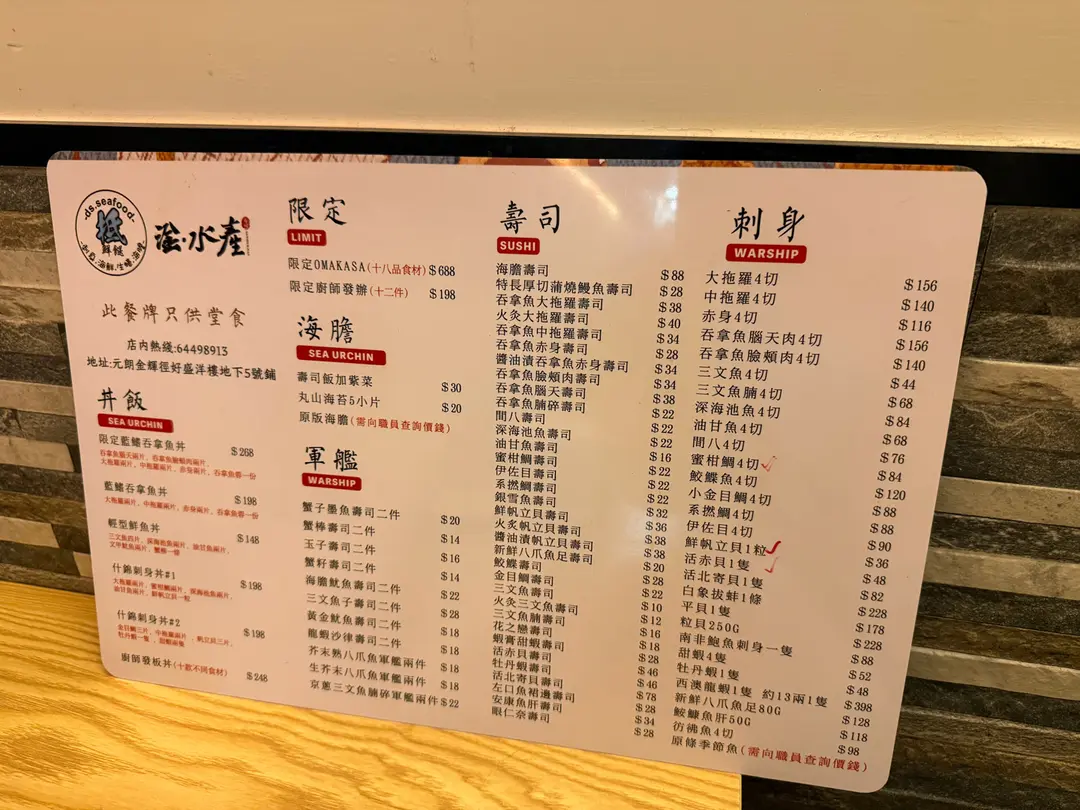 ds.seafood
抵
鮮艇
澄·水產
此餐牌只供堂食
店內熱綫:64498913
地址:元朗金輝徑好盛洋樓地下5號鋪
丼飯
SEA URCHIN
限定藍鰭吞拿魚丼 $268
吞拿魚腦天兩片，吞拿魚臉頰肉兩片，
大拖羅兩片，中拖羅兩片，赤身兩片，吞拿魚蓉一份
藍鰭吞拿魚丼 $198
大拖羅兩片，中拖羅兩片，赤身兩片，吞拿魚蓉一份
輕型鮮魚丼 $148
三文魚四片，深海池魚兩片，油甘魚兩片，
文甲魷魚兩片，蟹柳一條
什錦刺身丼#1 $198
大拖羅兩片，蜜柑鯛兩片，深海池魚兩片，
油甘魚兩片，鮮帆立貝一粒
什錦刺身丼#2 $198
金目鯛三片，中拖羅兩片，帆立貝三片，
牡丹蝦一隻，甜蝦兩隻
廚師發板丼(十款不同食材) $248
限定
LIMIT
限定OMAKASA(十八品食材) $688
限定廚師發辦(十二件) $198
海膽
SEA URCHIN
壽司飯加紫菜 $30
丸山海苔5小片 $20
原版海膽(需向職員查詢價錢)
軍艦
WARSHIP
蟹子墨魚壽司二件 $20
蟹棒壽司二件 $14
玉子壽司二件 $16
蟹籽壽司二件 $14
海膽魷魚壽司二件 $22
三文魚子壽司二件 $28
黃金魷魚壽司二件 $18
龍蝦沙律壽司二件 $18
芥末熟八爪魚軍艦兩件 $18
生芥末八爪魚軍艦兩件 $18
京蔥三文魚腩碎軍艦兩件 $22
壽司
SUSHI
海膽壽司 $88
特長厚切蒲燒鰻魚壽司 $28
吞拿魚大拖羅壽司 $38
火灸大拖羅壽司 $40
吞拿魚中拖羅壽司 $34
吞拿魚赤身壽司 $28
醬油漬吞拿魚赤身壽司 $34
吞拿魚臉頰肉壽司 $34
吞拿魚腦天壽司 $38
吞拿魚腩碎壽司 $22
間八壽司 $22
深海池魚壽司 $22
油甘魚壽司 $16
蜜柑鯛壽司 $22
伊佐目壽司 $22
系撚鯛壽司 $22
銀雪魚壽司 $32
鮮帆立貝壽司 $36
火炙帆立貝壽司 $38
醬油漬帆立貝壽司 $38
新鮮八爪魚足壽司 $20
鮫鰈壽司 $28
金目鯛壽司 $22
三文魚壽司 $10
火灸三文魚壽司 $12
三文魚腩壽司 $16
花之戀壽司 $18
蝦膏甜蝦壽司 $28
活赤貝壽司 $46
牡丹蝦壽司 $46
活北寄貝壽司 $78
左口魚裙邊壽司 $28
安康魚肝壽司 $34
眼仁奈壽司 $28
刺身
WARSHIP
大拖羅4切 $156
中拖羅4切 $140
赤身4切 $116
吞拿魚腦天肉4切 $156
吞拿魚臉頰肉4切 $140
三文魚4切 $44
三文魚腩4切 $68
深海池魚4切 $84
油甘魚4切 $68
間八4切 $76
蜜柑鯛4切 $84
鮫鰈魚4切 $120
小金目鯛4切 $88
系撚鯛4切 $88
伊佐目4切 $90
鮮帆立貝1粒 $36
活赤貝1隻 $48
活北寄貝1隻 $82
白象拔蚌1條 $228
平貝1隻 $178
粒貝250G $228
南非鮑魚刺身一隻 $88
甜蝦4隻 $52
牡丹蝦1隻 $48
西澳龍蝦1隻 約13兩1隻 $398
新鮮八爪魚足80G $128
鮟鱇魚肝50G $118
彷彿魚4切 $98
原條季節魚(需向職員查詢價錢)